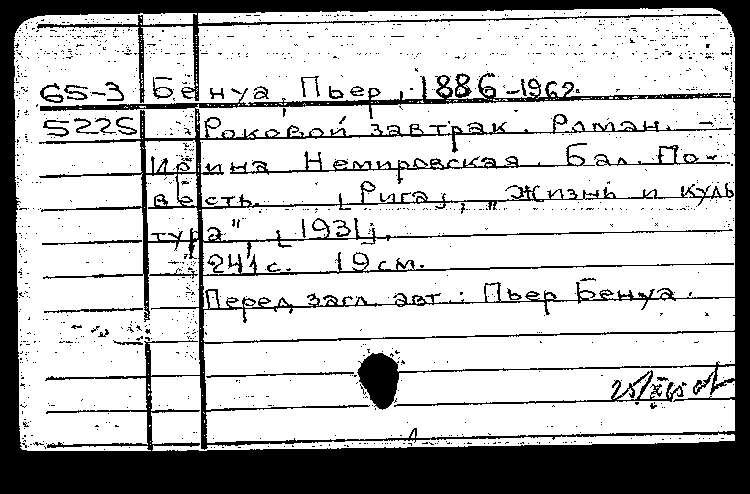 65-3 Бенуа, Пьер, 1886-1962.
5225 Роковой завтрак. Роман. –
Ирина Немировская. Бал. По-
весть. [Рига], „Жизнь и куль
тура", [1931].
241 с. 19 см.
Перед загл. авт.: Пьер Бенуа.